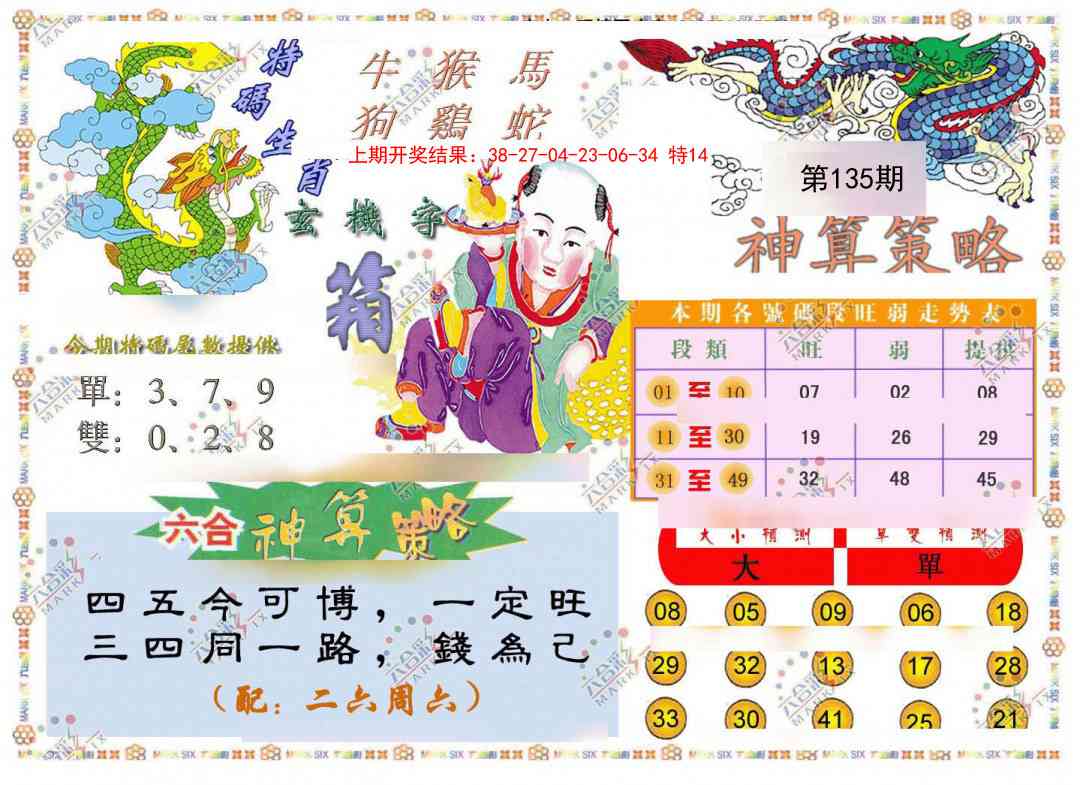 特碼生肖
牛 猴 馬
狗 鷄 蛇
上期开奖结果：38-27-04-23-06-34 特14
第135期
玄機字
箱
神算策略
今期特碼尾數提供
單：3、7、9
雙：0、2、8
本期各號碼段旺弱走勢表
段類 旺 弱 提供
01 至 10 07 02 08
11 至 30 19 26 29
31 至 49 32 48 45
六合神算策略
四五今可博，一定旺
三四同一路，錢為己
（配：二六周六）
大小預測 單雙預測
大 單
08 05 09 06 18
29 32 13 17 28
33 30 41 25 21